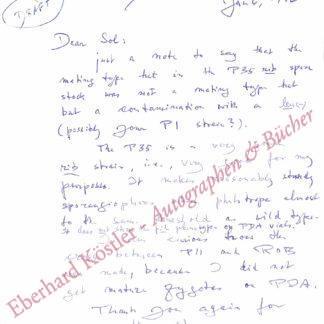 Jan 6, 
Dear Sol:
just a note to say that the
mating type het in the P35 nib spore
stock was not a mating type het
but a contamination with a
(possibly your P1 strain?).
The P35 is a very
nib strain, i.e., very for my
purposes. It makes reasonably sturdy
sporangiophores philotrope almost
to the same threshold as wild type.
It does not show phenotype on PDA vials.
curious
between P11 and
made, because I did not
get mature zygotes on PDA.
Thank you again for
Eberhard Köstler - Autographen & Bücher